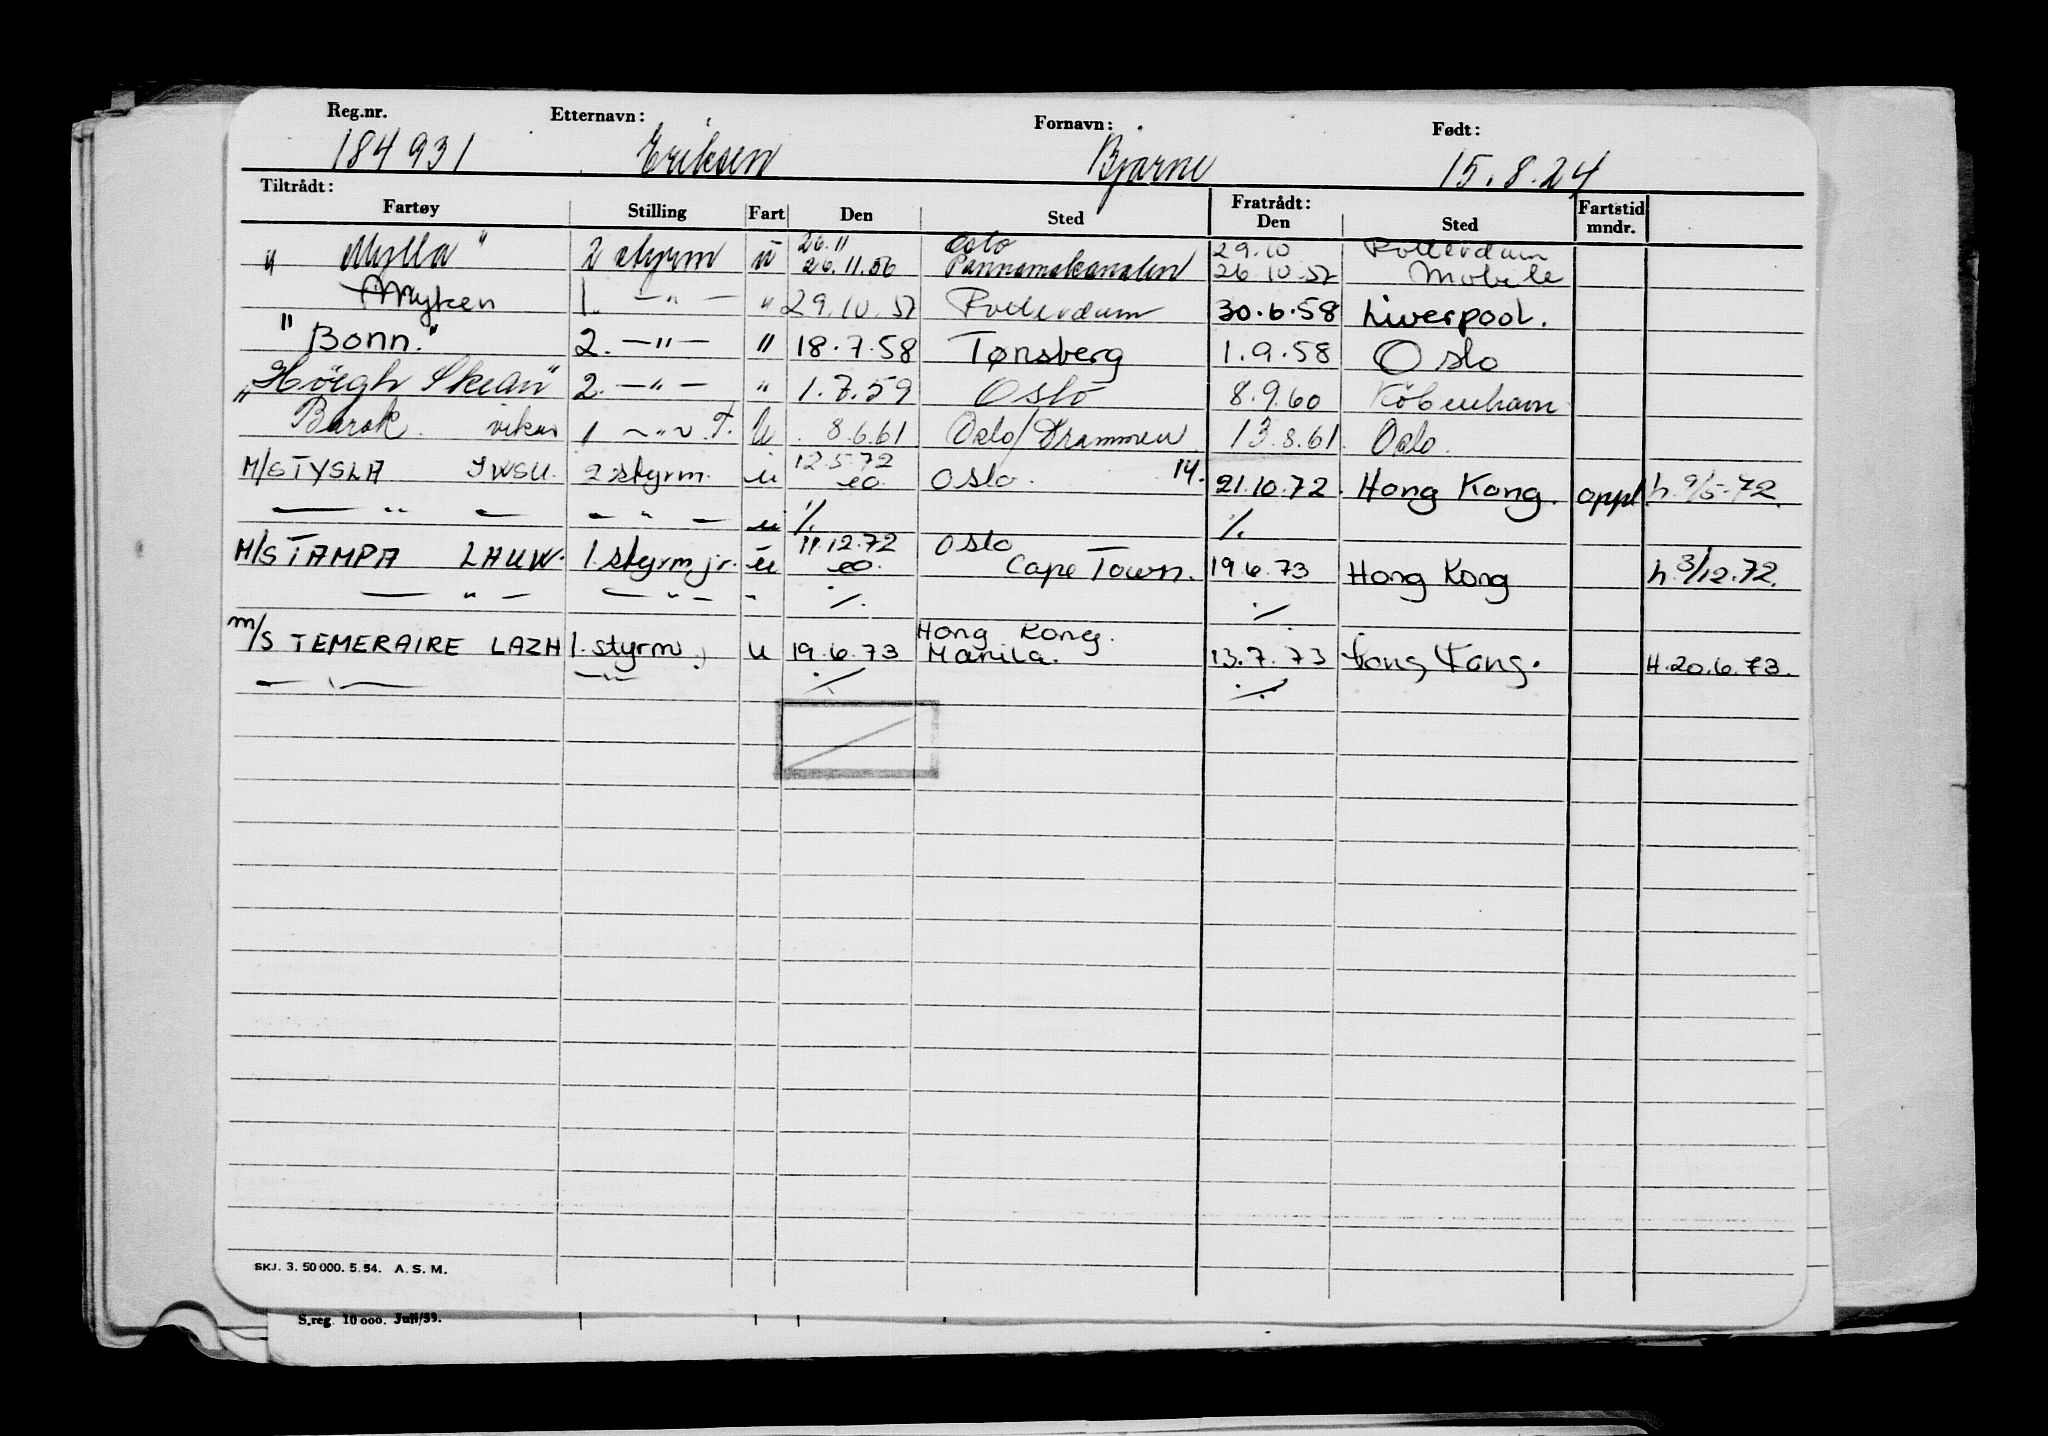 Reg.nr. Etternavn: Fornavn: Født:
184931 Eriksen Bjarne 15.8.24
Tiltrådt: Fratrådt:
Fartøy Stilling Fart Den Sted Den Sted Fartstid mndr.
26.11 Oslo 29.10 Rotterdam
" Mylla " 2 styrm u 26.11.56 Pannamakanalen 26.10.57 Mobile
Myken 1. —"— " 29.10.57 Rotterdam 30.6.58 Liverpool.
" Bonn." 2. —"— " 18.7.58 Tønsberg 1.9.58 Oslo
"Höegh Skean" 2. —"— " 1.7.59 Oslo 8.9.60 København
Barok. vikar 1 —"— F. U. 8.6.61 Oslo/Drammen 13.8.61. Oslo.
12.5.72
M/S TYSLA JWSU. 2 styrm. u eo. Oslo. 14. 21.10.72. Hong Kong. oppl. h. 9/5-72.
— " — — " — u ./. ./.
11.12.72 Oslo
M/S TAMPA LAUW. 1. styrm jr. u eo. Cape Town. 19.6.73 Hong Kong h. 3/12.72.
— " — — " — " ./. ./.
Hong Kong.
M/S TEMERAIRE LAZH 1. styrm. u 19.6.73 Manila. 13.7.73 Hong Kong. H. 20.6.73.
— " — — " — ./. ./.
SKJ. 3. 50 000. 5. 54. A. S. M.
S.reg. 10 000. Juli/39.